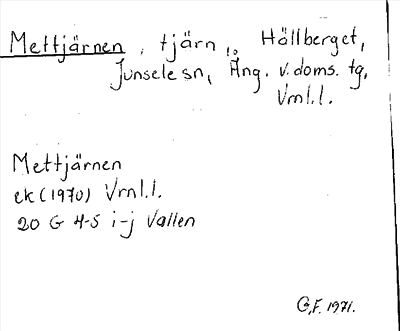 Mettjärnen, tjärn, Hällberget,
Junsele sn, Ång. v. doms. tg,
Vrnl.l.
Mettjärnen
ek (1970) Vrnl.l.
20 G 4-5 i-j Vallen
G,F. 1971.